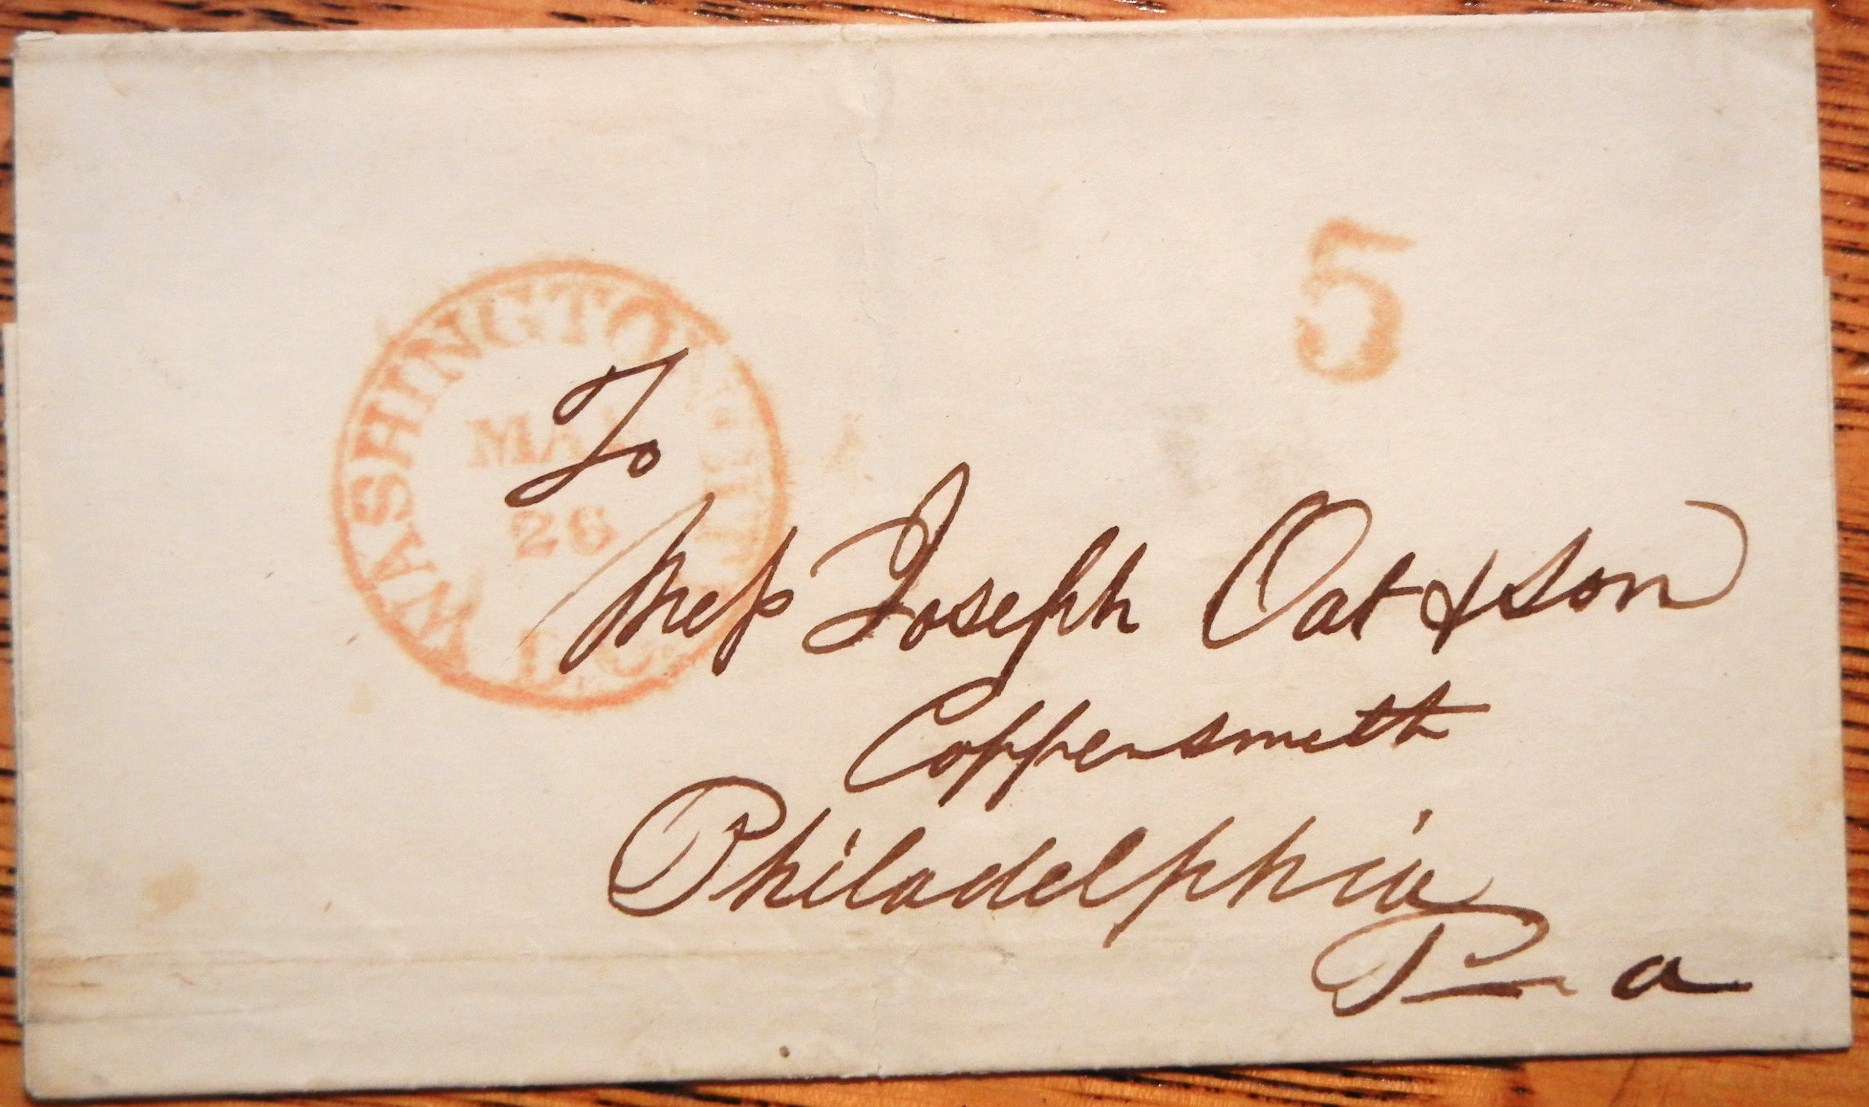 WASHINGTON CITY
D.C.
26
5
To
Mess Joseph Oat & Son
Coppersmith
Philadelphia
Pa